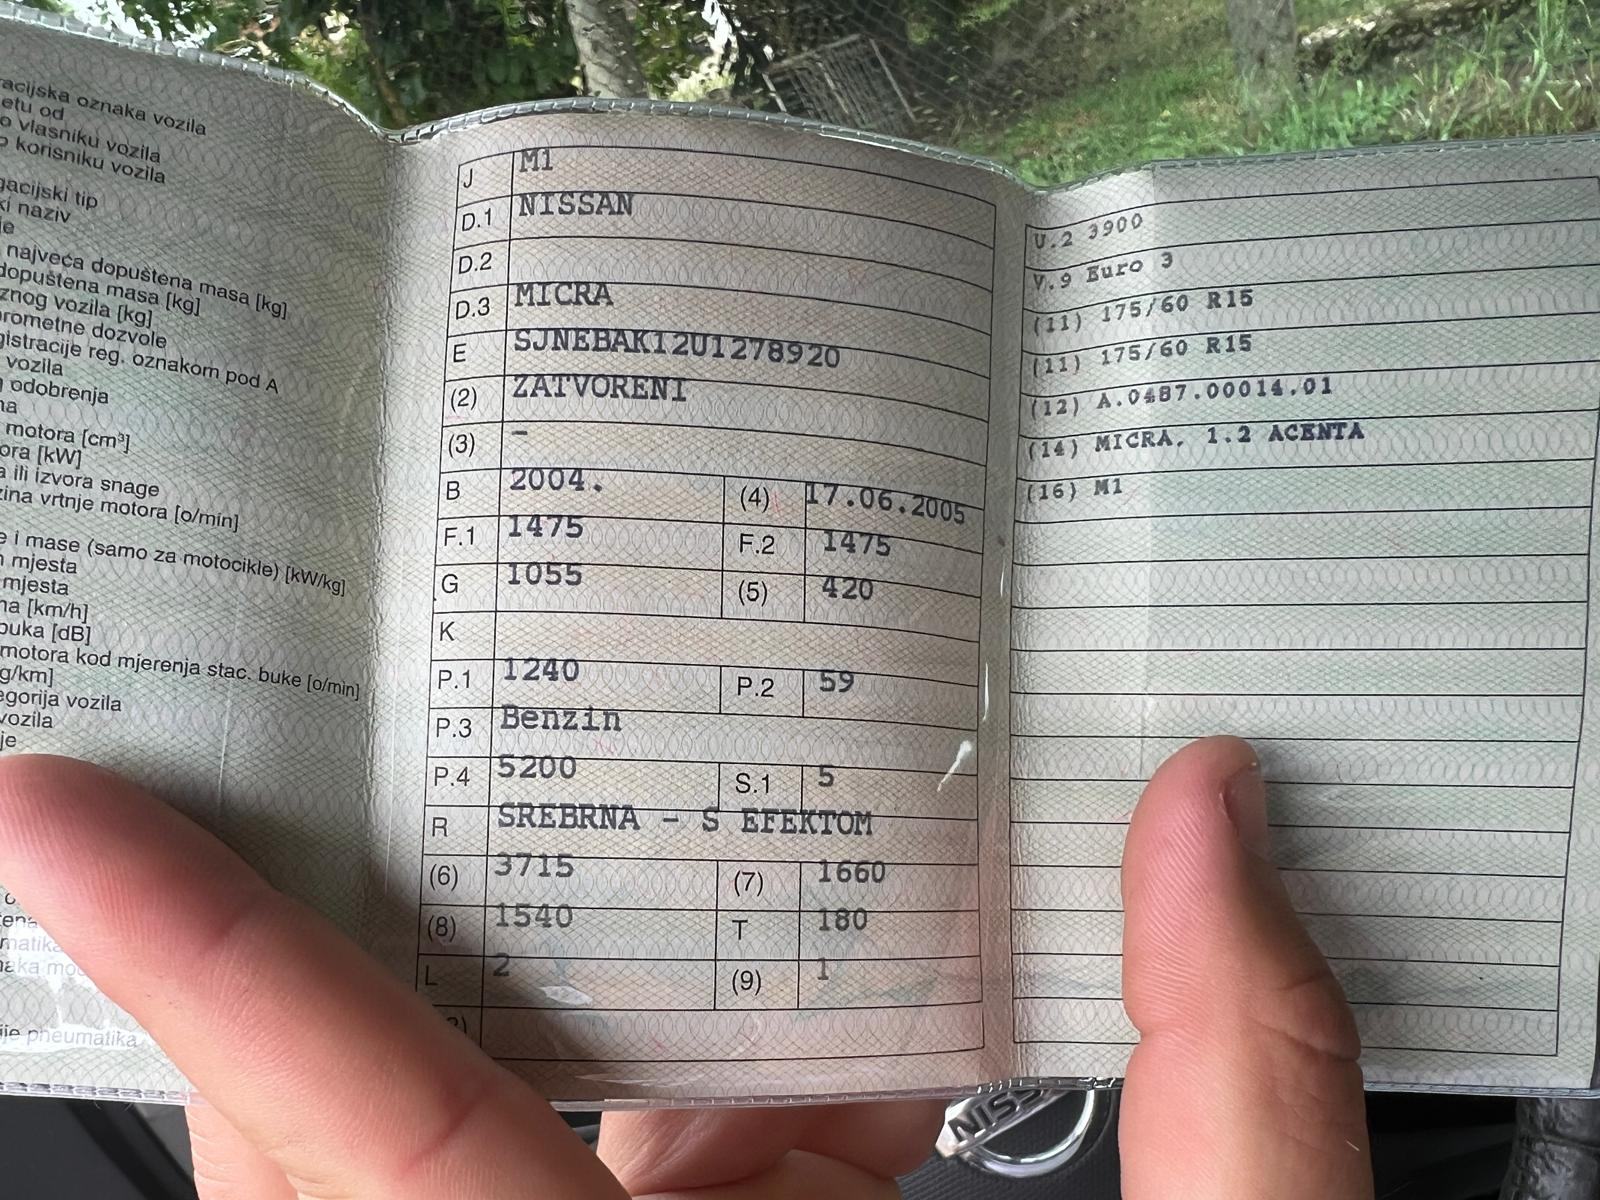 acijska oznaka vozila
etu od
o vlasniku vozila
o korisniku vozila
gacijski tip
ki naziv
je
najveća dopuštena masa [kg]
dopuštena masa [kg]
znog vozila [kg]
prometne dozvole
gistracije reg. oznakom pod A
vozila
odobrenja
na
motora [cm³]
ora [kW]
a ili izvora snage
zina vrtnje motora [o/min]
e i mase (samo za motocikle) [kW/kg]
mjesta
mjesta
na [km/h]
buka [dB]
motora kod mjerenja stac. buke [o/min]
g/km]
egorija vozila
vozila
je
matika
ije pneumatika
J M1
D.1 NISSAN
D.2
D.3 MICRA
E SJNEBAK12U1278920
(2) ZATVORENI
(3) –
B 2004. (4) 17.06.2005
F.1 1475 F.2 1475
G 1055 (5) 420
K
P.1 1240 P.2 59
P.3 Benzin
P.4 5200 S.1 5
R SREBRNA – S EFEKTOM
(6) 3715 (7) 1660
(8) 1540 T 180
L 2 (9) 1
U.2 3900
V.9 Euro 3
(11) 175/60 R15
(11) 175/60 R15
(12) A.0487.00014.01
(14) MICRA, 1.2 ACENTA
(16) M1
NISS